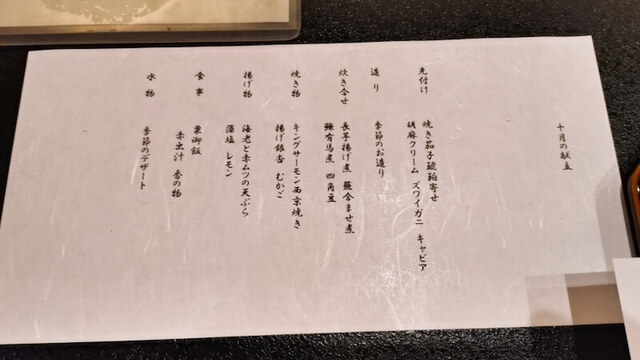 十月の献立
先付け
焼き茄子琥珀寄せ
胡麻クリーム ズワイガニ キャビア
造り
季節のお造り
炊き合せ
長芋揚げ煮 蕪含ませ煮
鰊有馬煮 四角豆
焼き物
キングサーモン西京焼き
揚げ銀杏 むかご
揚げ物
海老と赤ムツの天ぷら
藻塩 レモン
食事
栗御飯
赤出汁 香の物
水物
季節のデザート